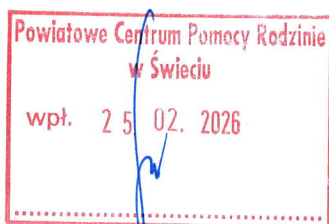 Powiatowe Centrum Pomocy Rodzinie
w Świeciu
wpł. 25 02. 2026